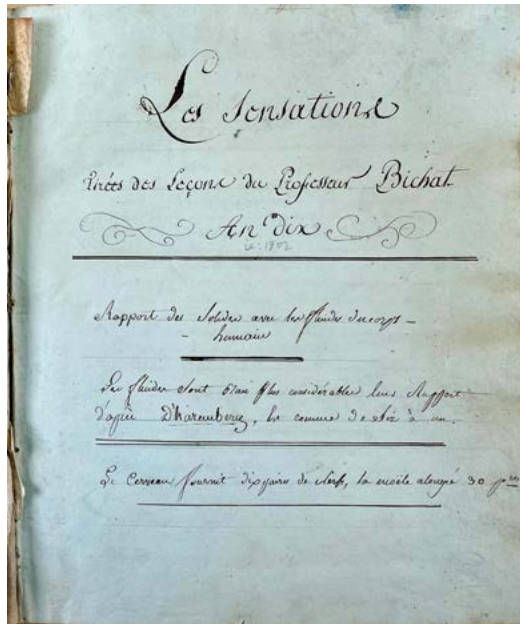 Les Sensations
tirées des Leçons du Professeur Bichat
An dix
1802
Rapport des Solides avec les fluides du corps -
- humain
Les fluides sont bien plus considérables leur Rapport
d'après est comme de à un.
Le Cerveau fournit dix paires de Nerfs, la moële 30 p.res